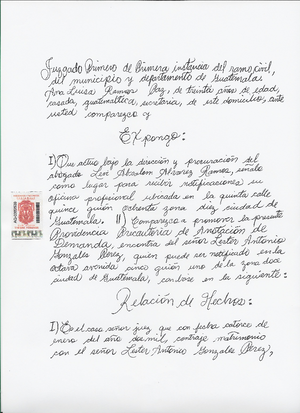 Juzgado Primero de Primera instancia del ramo civil,
del municipio y departamento de Guatemala.
Ana Luisa Ramos Paz, de treinta años de edad,
casada, guatemalteca, secretaria, de este domicilio, ante
usted comparezco y
Expongo:
I) Que actúo bajo la dirección y procuración del
abogado Abraham Alvarez Ramos, señalo
como lugar para recibir notificaciones su
oficina profesional ubicada en la quinta calle
quince guión ochenta zona diez ciudad de
Guatemala. II) Comparezco a promover la presente
Providencia Precautoria de Anotación de
Demanda, encontra del señor Lester Antonio
Gonzales Pérez, quien puede ser notificado en la
octava avenida cinco guión uno de la zona doce
ciudad de Guatemala, con base en lo siguiente:
Relación de Hechos:
I) Es el caso señor juez que con fecha catorce de
enero del año dos mil, contraje matrimonio
con el señor Lester Antonio Gonzales Pérez,